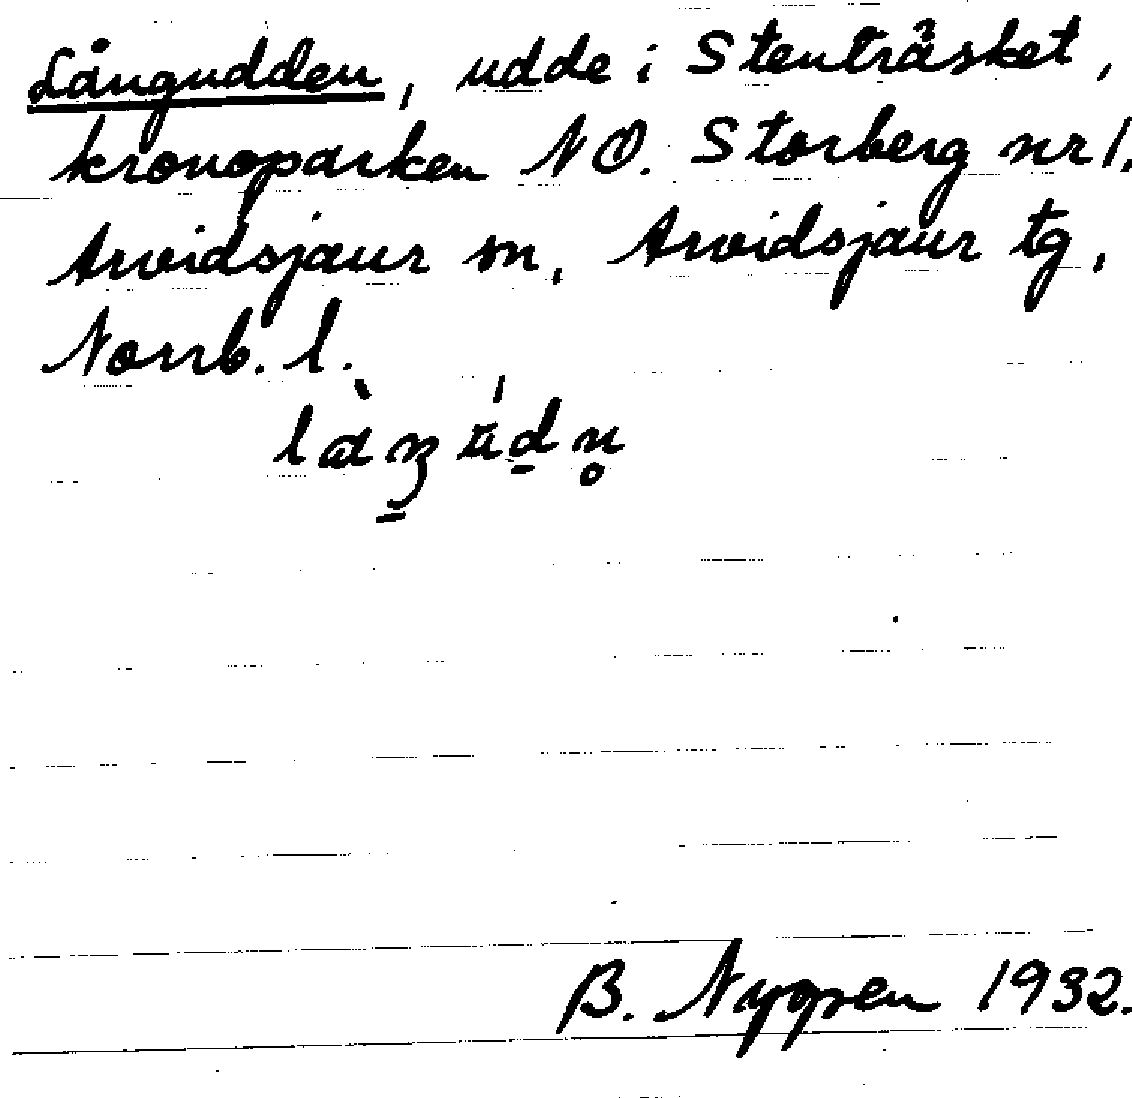 Långudden, udde i Stenträsket,
kronoparken NO. Storberg nr 1.
Arvidsjaur sn, Arvidsjaur tg,
Norrb. l.
B. Nyopen 1932.